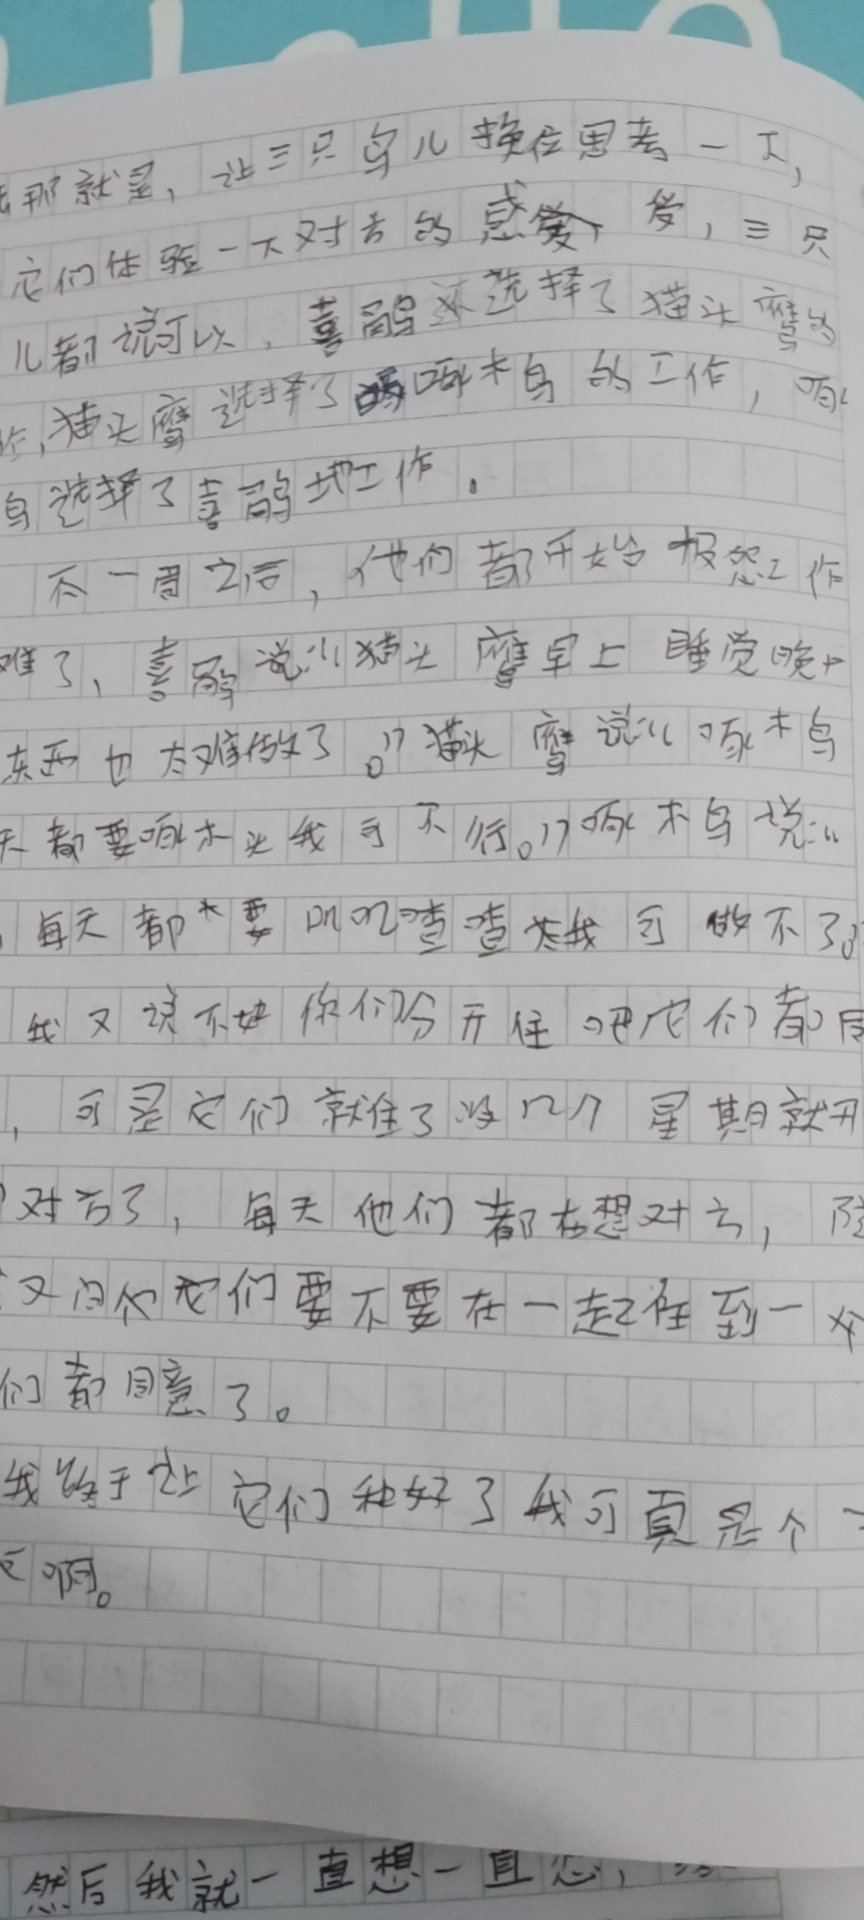 Hello
那就是，让三只鸟儿换位思考一下，
它们体验一下对方的感受，三只
儿都说可以，喜鹊选择了猫头鹰的
猫头鹰选择了啄木鸟的工作，啄
鸟选择了喜鹊地工作。
不一周之后，他们都开始报怨工作
难了，喜鹊说：“猫头鹰早上睡觉晚上
东西也太难做了。”猫头鹰说：“啄木鸟
天都要啄木头我可不行。”啄木鸟说：“
每天都要叽叽喳喳我可做不了。
我又说不如你们分开住吧它们都同
，可是它们就住了没几个星期就开
对方了，每天他们都在想对方，
又问它们要不要在一起住到一
们都同意了。
我终于让它们和好了我可真是个
啊。
然后我就一直想一直想，